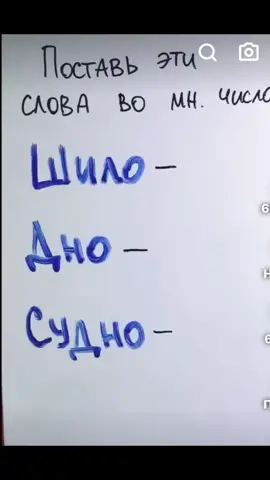 Поставь эти
слова во мн. число
Шило –
Дно –
Судно –